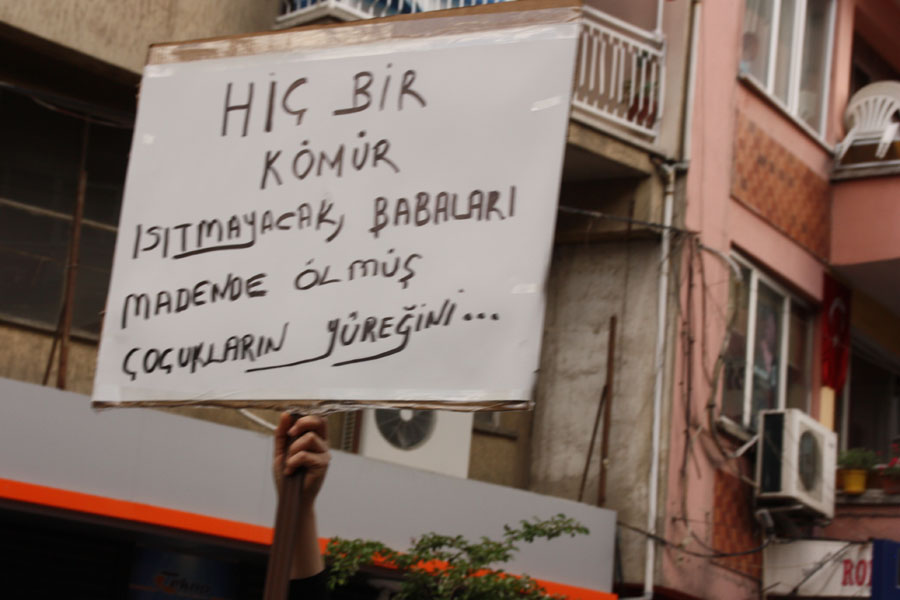 HİÇ BİR
KÖMÜR
ISITMAYACAK, BABALARI
MADENDE ÖLMÜŞ
ÇOÇUKLARIN YÜREĞİNİ...
Tekno